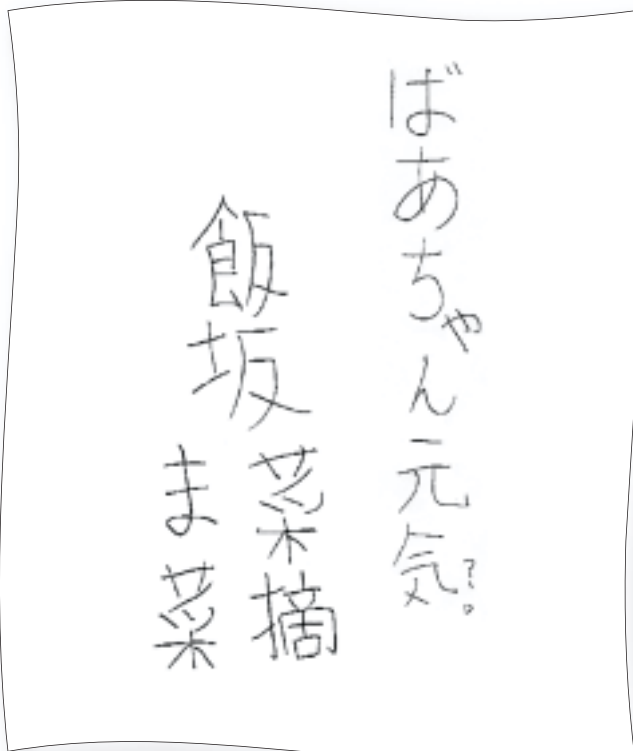 ばあちゃん元気?。
飯坂
菜摘
ま菜